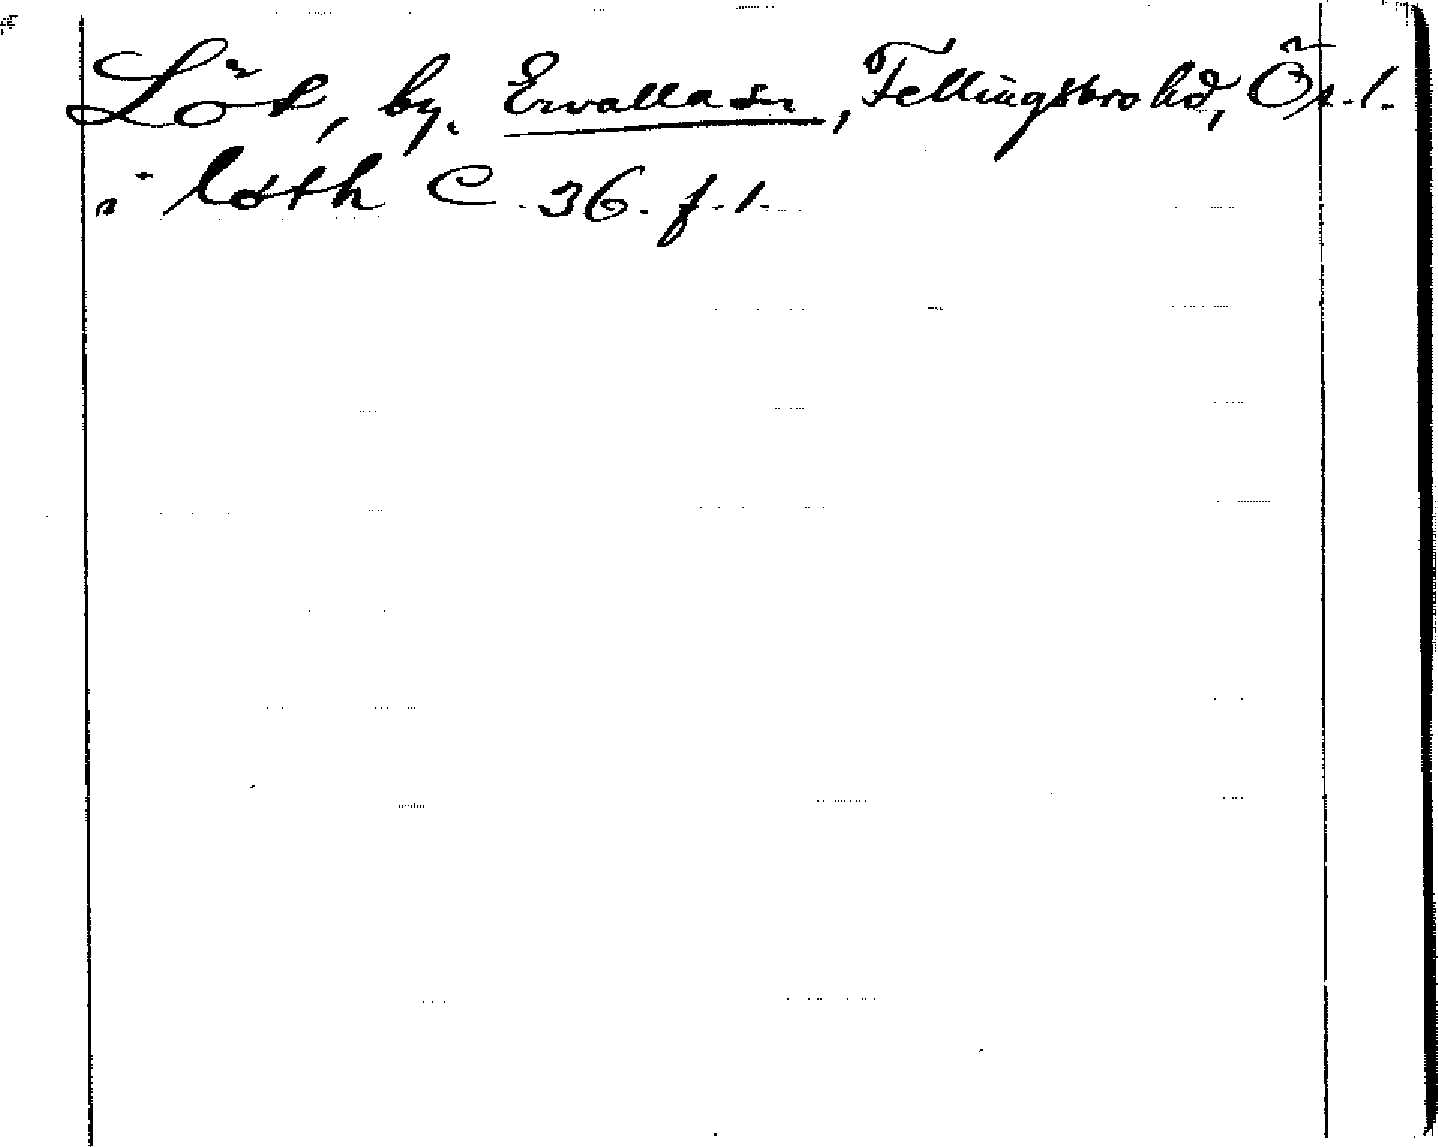 Löt, by. Ervalla sn, Fellingsbro hd, Ör. l.
i löth C. 36. f. 1.